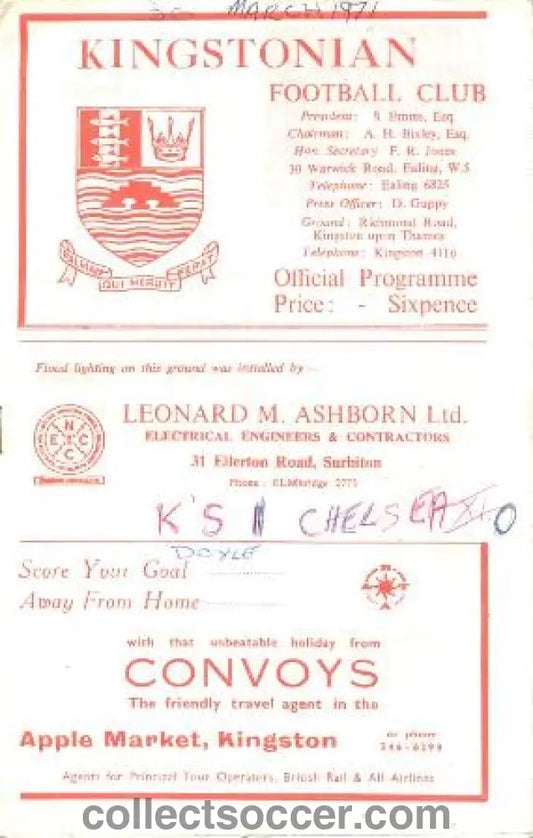 MARCH 1971
KINGSTONIAN
FOOTBALL CLUB
President: S Emms, Esq
Chairman: A. H. Bixley, Esq.
Hon. Secretary F. R. Jones
30 Warwick Road, Ealing, W.5
Telephone: Ealing 6825
Press Officer: D. Guppy
Ground: Richmond Road,
Kingston upon Thames
Telephone: Kingston 4116
Official Programme
Price: - Sixpence
PALMAM QUI MERUIT FERAT
Flood lighting on this ground was installed by
LEONARD M. ASHBORN Ltd.
ELECTRICAL ENGINEERS & CONTRACTORS
31 Ellerton Road, Surbiton
Phone: ELMbridge 2775
K'S 1 CHELSEA XI 0
DOYLE
Score Your Goal
Away From Home
with that unbeatable holiday from
CONVOYS
The friendly travel agent in the
Apple Market, Kingston
or phone
546-6398
Agents for Principal Tour Operators, British Rail & All Airlines
collectsoccer.com